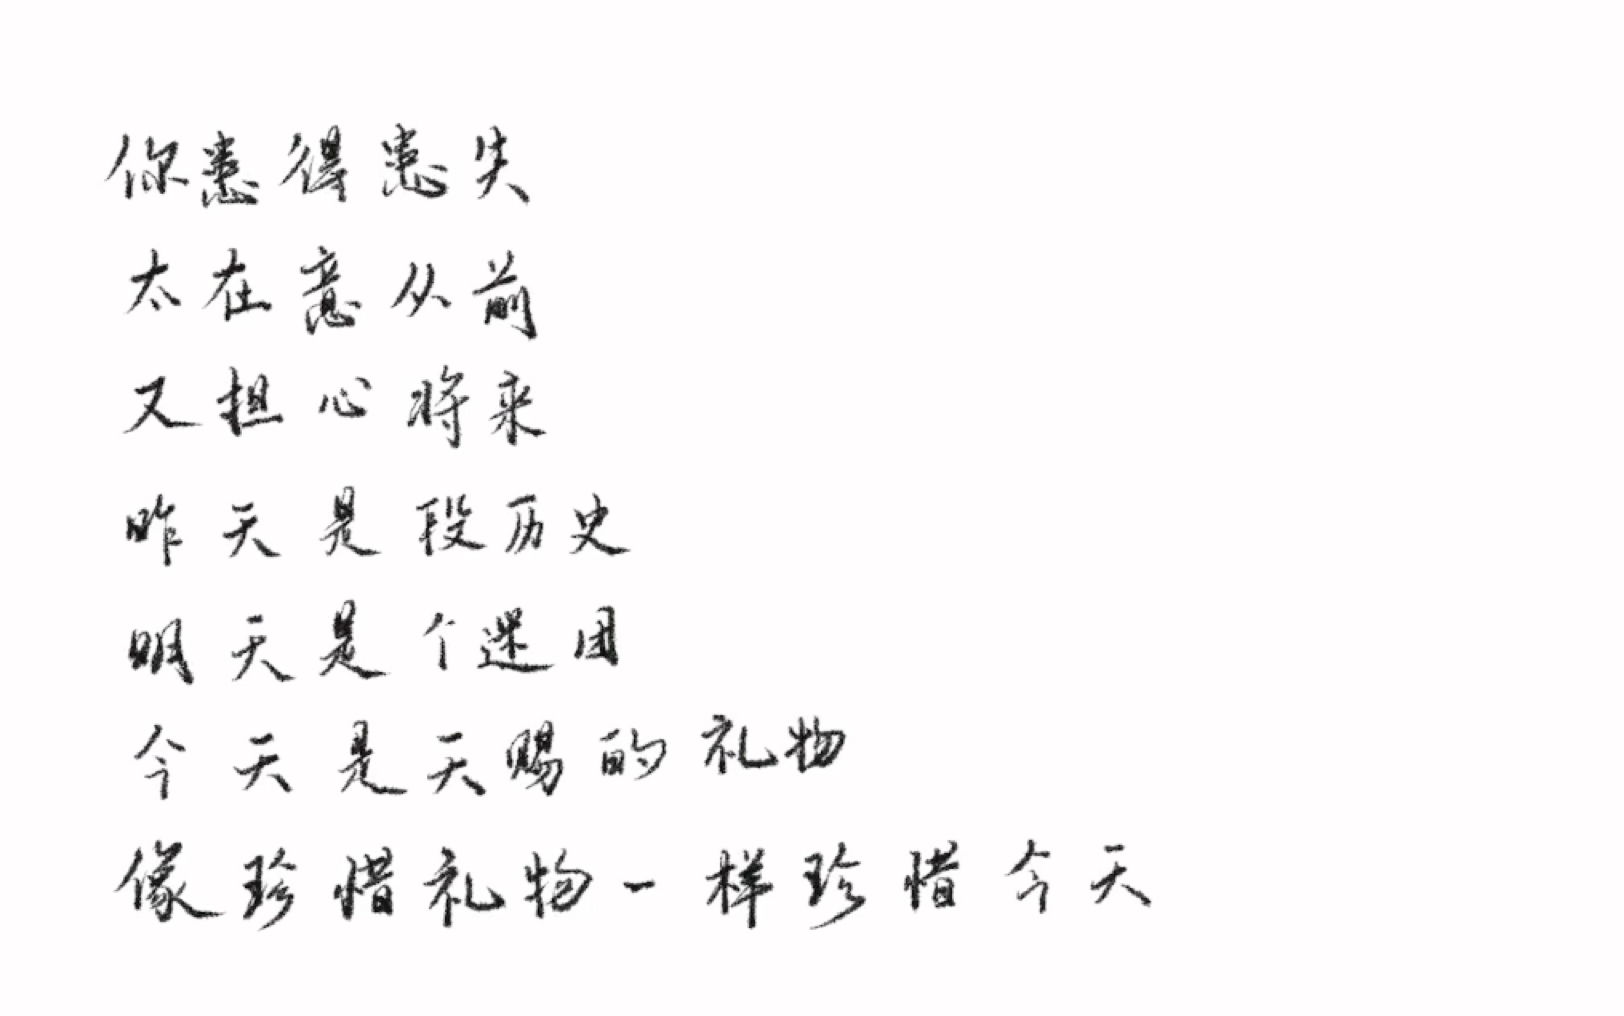 你患得患失
太在意从前
又担心将来
昨天是段历史
明天是个迷团
今天是天赐的礼物
像珍惜礼物一样珍惜今天